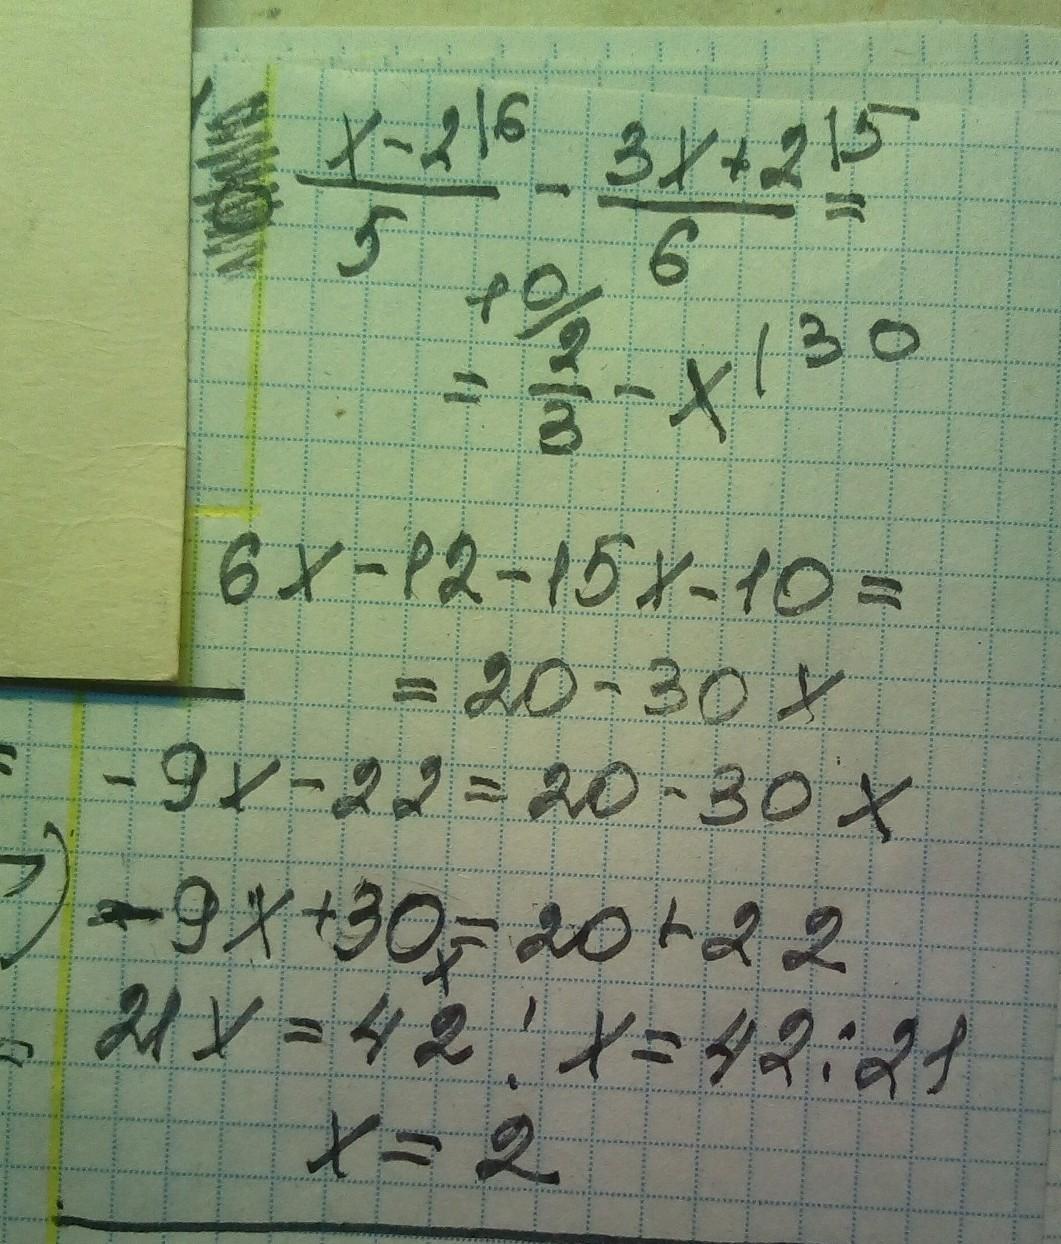 x-2|6 / 5 - 3x+2|5 / 6 =
= 10/ 2/3 - x|30
6x-12-15x-10=
=20-30x
-9x-22=20-30x
-9x+30x=20+22
21x=42; x=42:21
x=2